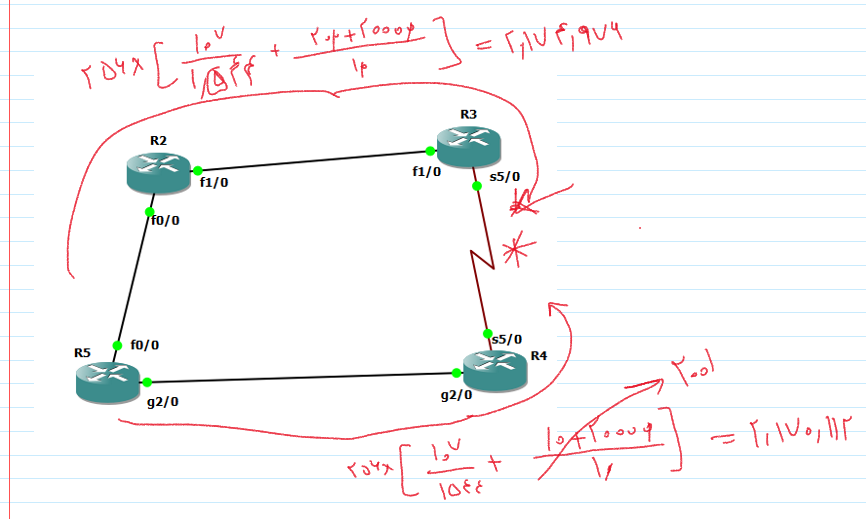 ۲۵۶×[ ۱۰^۷ / ۱۵۴۴ + ۲۰۰+۲۰۰۰۰ / ۱۰ ] = ۲,۱۷۴,۹۷۶
R3
R2
f1/0
f1/0
s5/0
f0/0
*
s5/0
R5
f0/0
R4
g2/0
g2/0
۲۰۰۱
۲۵۶×[ ۱۰^۷ / ۱۵۴۴ + ۱۰+۲۰۰۰۰ / ۱۰ ] = ۲,۱۷۰,۱۱۲